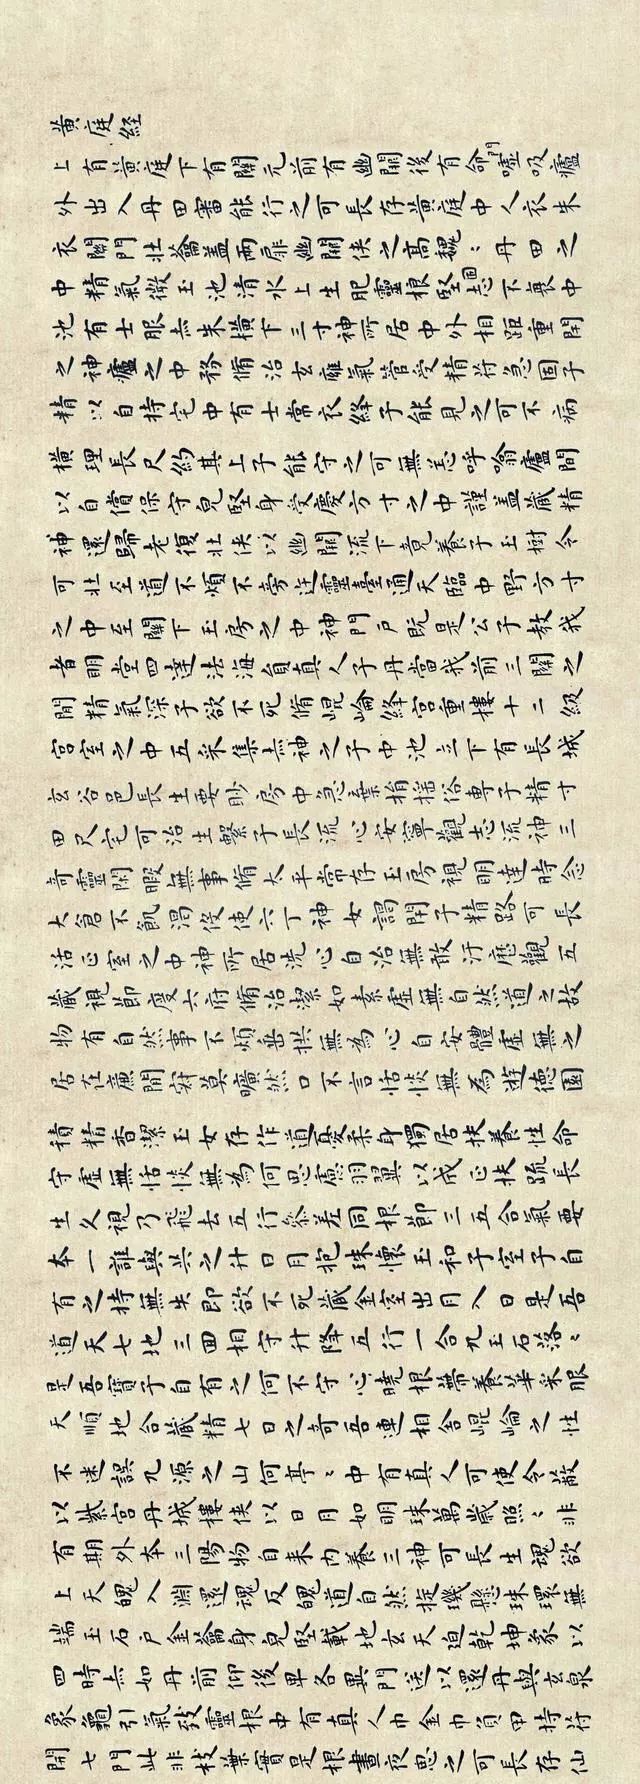 黄庭經
上有黄庭下有關元前有幽闕後有命門噓吸廬
外出入丹田審能行之可長存黄庭中人衣朱
衣關門壯籥蓋兩扉幽闕俠之高魏〻丹田之
中精氣微玉池清水上生肥靈根堅固志不衰中
池有士服赤朱橫下三寸神所居中外相距重閉
之神廬之中務脩治玄癰氣管受精符急固子
精以自持宅中有士常衣絳子能見之可不病
橫理長尺約其上子能守之可無恙呼噏廬間
以自償保守皃堅身受慶方寸之中謹蓋藏精
神還歸老復壯俠以幽闕流下竟養子玉樹令
可壯至道不煩不旁迕靈臺通天臨中野方寸
之中至關下玉房之中神門戶既是公子教我
者明堂四達法海員真人子丹當我前三關之
間精氣深子欲不死脩崐崘絳宮重樓十二級
宮室之中五采集赤神之子中池立下有長城
玄谷邑長生要眇房中急棄捐揺俗專子精寸
田尺宅可治生繫子長流心安寧觀志流神三
奇靈閑暇無事脩太平常存玉房視明達時念
大倉不飢渴役使六丁神女謁閉子精路可長
活正室之中神所居洗心自治無敢汙歷觀五
藏視節度六府脩治潔如素虛無自然道之故
物有自然事不煩垂拱無為心自安體虛無之
居在廉間寂莫曠然口不言恬惔無為遊德園
積精香潔玉女存作道憂柔身獨居扶養性命
守虛無恬惔無為何思慮羽翼以成正扶疏長
生久視乃飛去五行參差同根節三五合氣要
本一誰與共之升日月抱珠懷玉和子室子自
有之持無失即欲不死藏金室出月入日是吾
道天七地三回相守升降五行一合九玉石落〻
是吾寶子自有之何不守心曉根蔕養華采服
天順地合藏精七日之奇吾連相舍崐崘之性
不迷誤九源之山何亭〻中有真人可使令蔽
以紫宮丹城樓俠以日月如明珠萬歲照〻非
有期外本三陽物自来内養三神可長生魂欲
上天魄入淵還魂反魄道自然挻璣懸珠環無
端玉石戶金籥身皃堅載地玄天迫乾坤象以
四時赤如丹前仰後卑各異門送以還丹與玄泉
象龜引氣致靈根中有真人巾金巾負甲持符
開七門此非枝葉實是根晝夜思之可長存仙